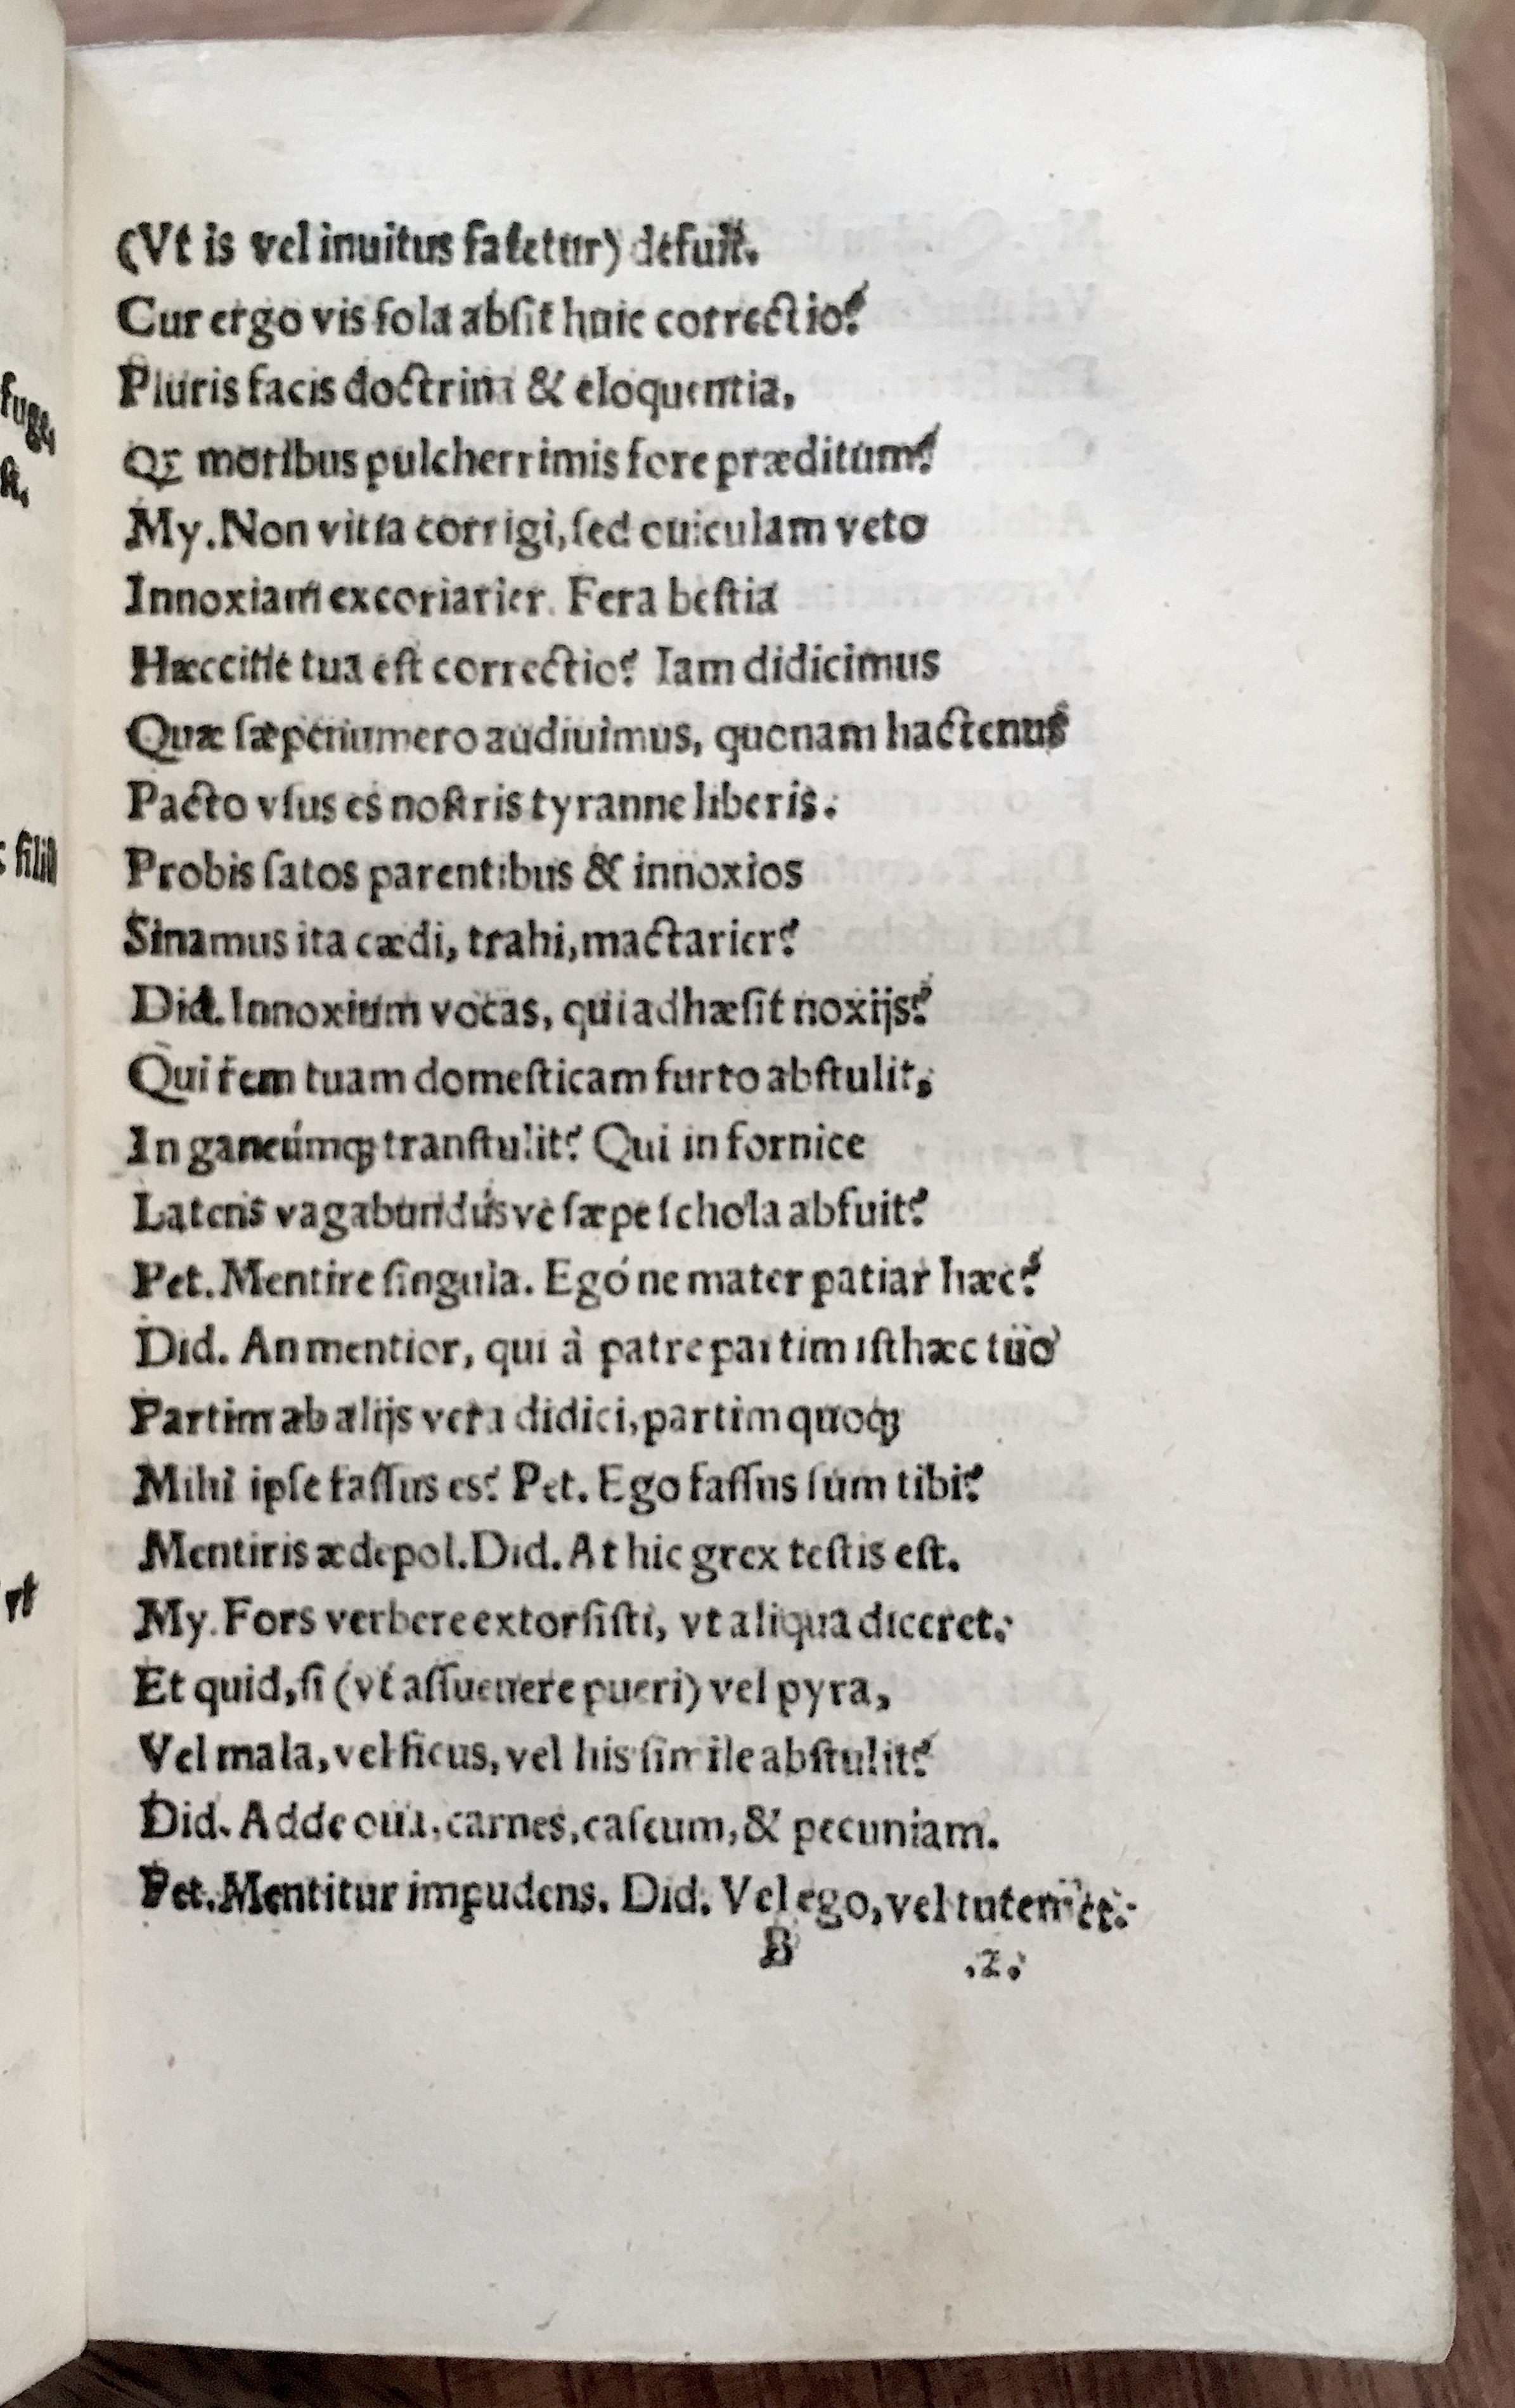 (Vt is vel inuitus fatetur) defuit.
Cur ergo vis sola absit huic correctio?
Pluris facis doctrina & eloquentia,
Qꝫ moribus pulcherrimis fore præditum?
My. Non vitia corrigi, ſed cuiculam veto
Innoxiam excoriarier. Fera beſtia
Hæccine tua eſt correctio? Iam didicimus
Quæ ſæpenumero audiuimus, quonam hactenus
Pacto vſus es noſtris tyranne liberis.
Probis ſatos parentibus & innoxios
Sinamus ita cædi, trahi, mactarier?
Did. Innoxium vocas, qui adhæſit noxijs?
Qui rem tuam domeſticam furto abſtulit,
In ganeúmqꝫ tranſtulit? Qui in fornice
Latens vagabundúsve ſæpe ſchola abfuit?
Pet. Mentire ſingula. Egóne mater patiar hæc?
Did. An mentior, qui à patre partim iſthæc tuo
Partim ab alijs vera didici, partim quoqꝫ
Mihi ipſe faſſus es? Pet. Ego faſſus ſum tibi?
Mentiris ædepol. Did. At hic grex teſtis eſt.
My. Fors verbere extorſiſti, vt aliqua diceret.
Et quid, ſi (vt aſſueuere pueri) vel pyra,
Vel mala, vel ficus, vel his ſimile abſtulit?
Did. Adde oua, carnes, caſeum, & pecuniam.
Pet. Mentitur impudens. Did. Vel ego, vel tutemet.
B .2.
fuge,
ſt.
filiū
vt